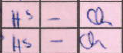 Hs - Ch
Hs - Ch